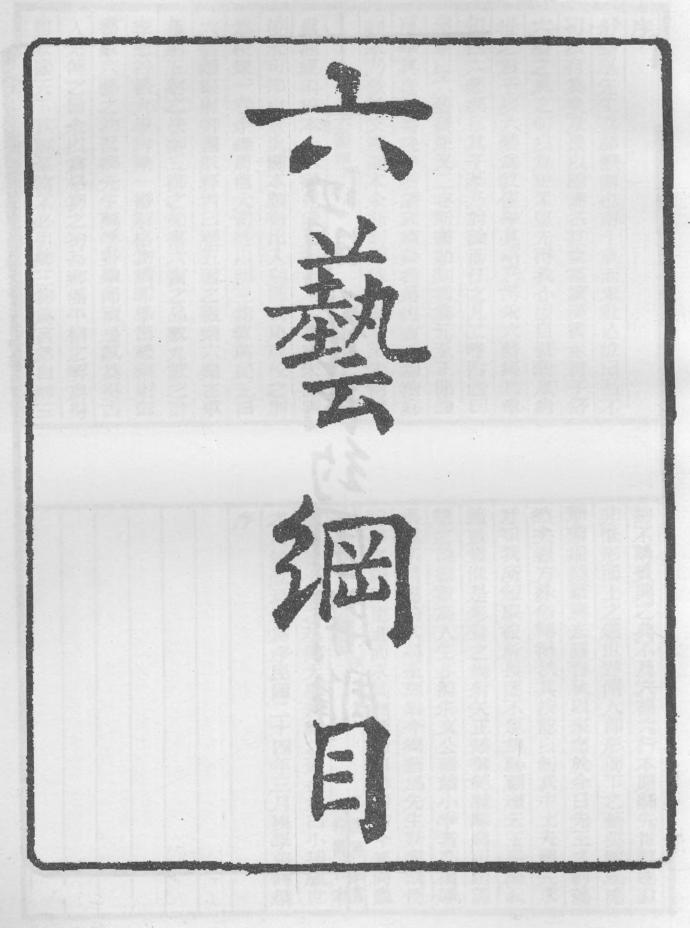 六藝綱目